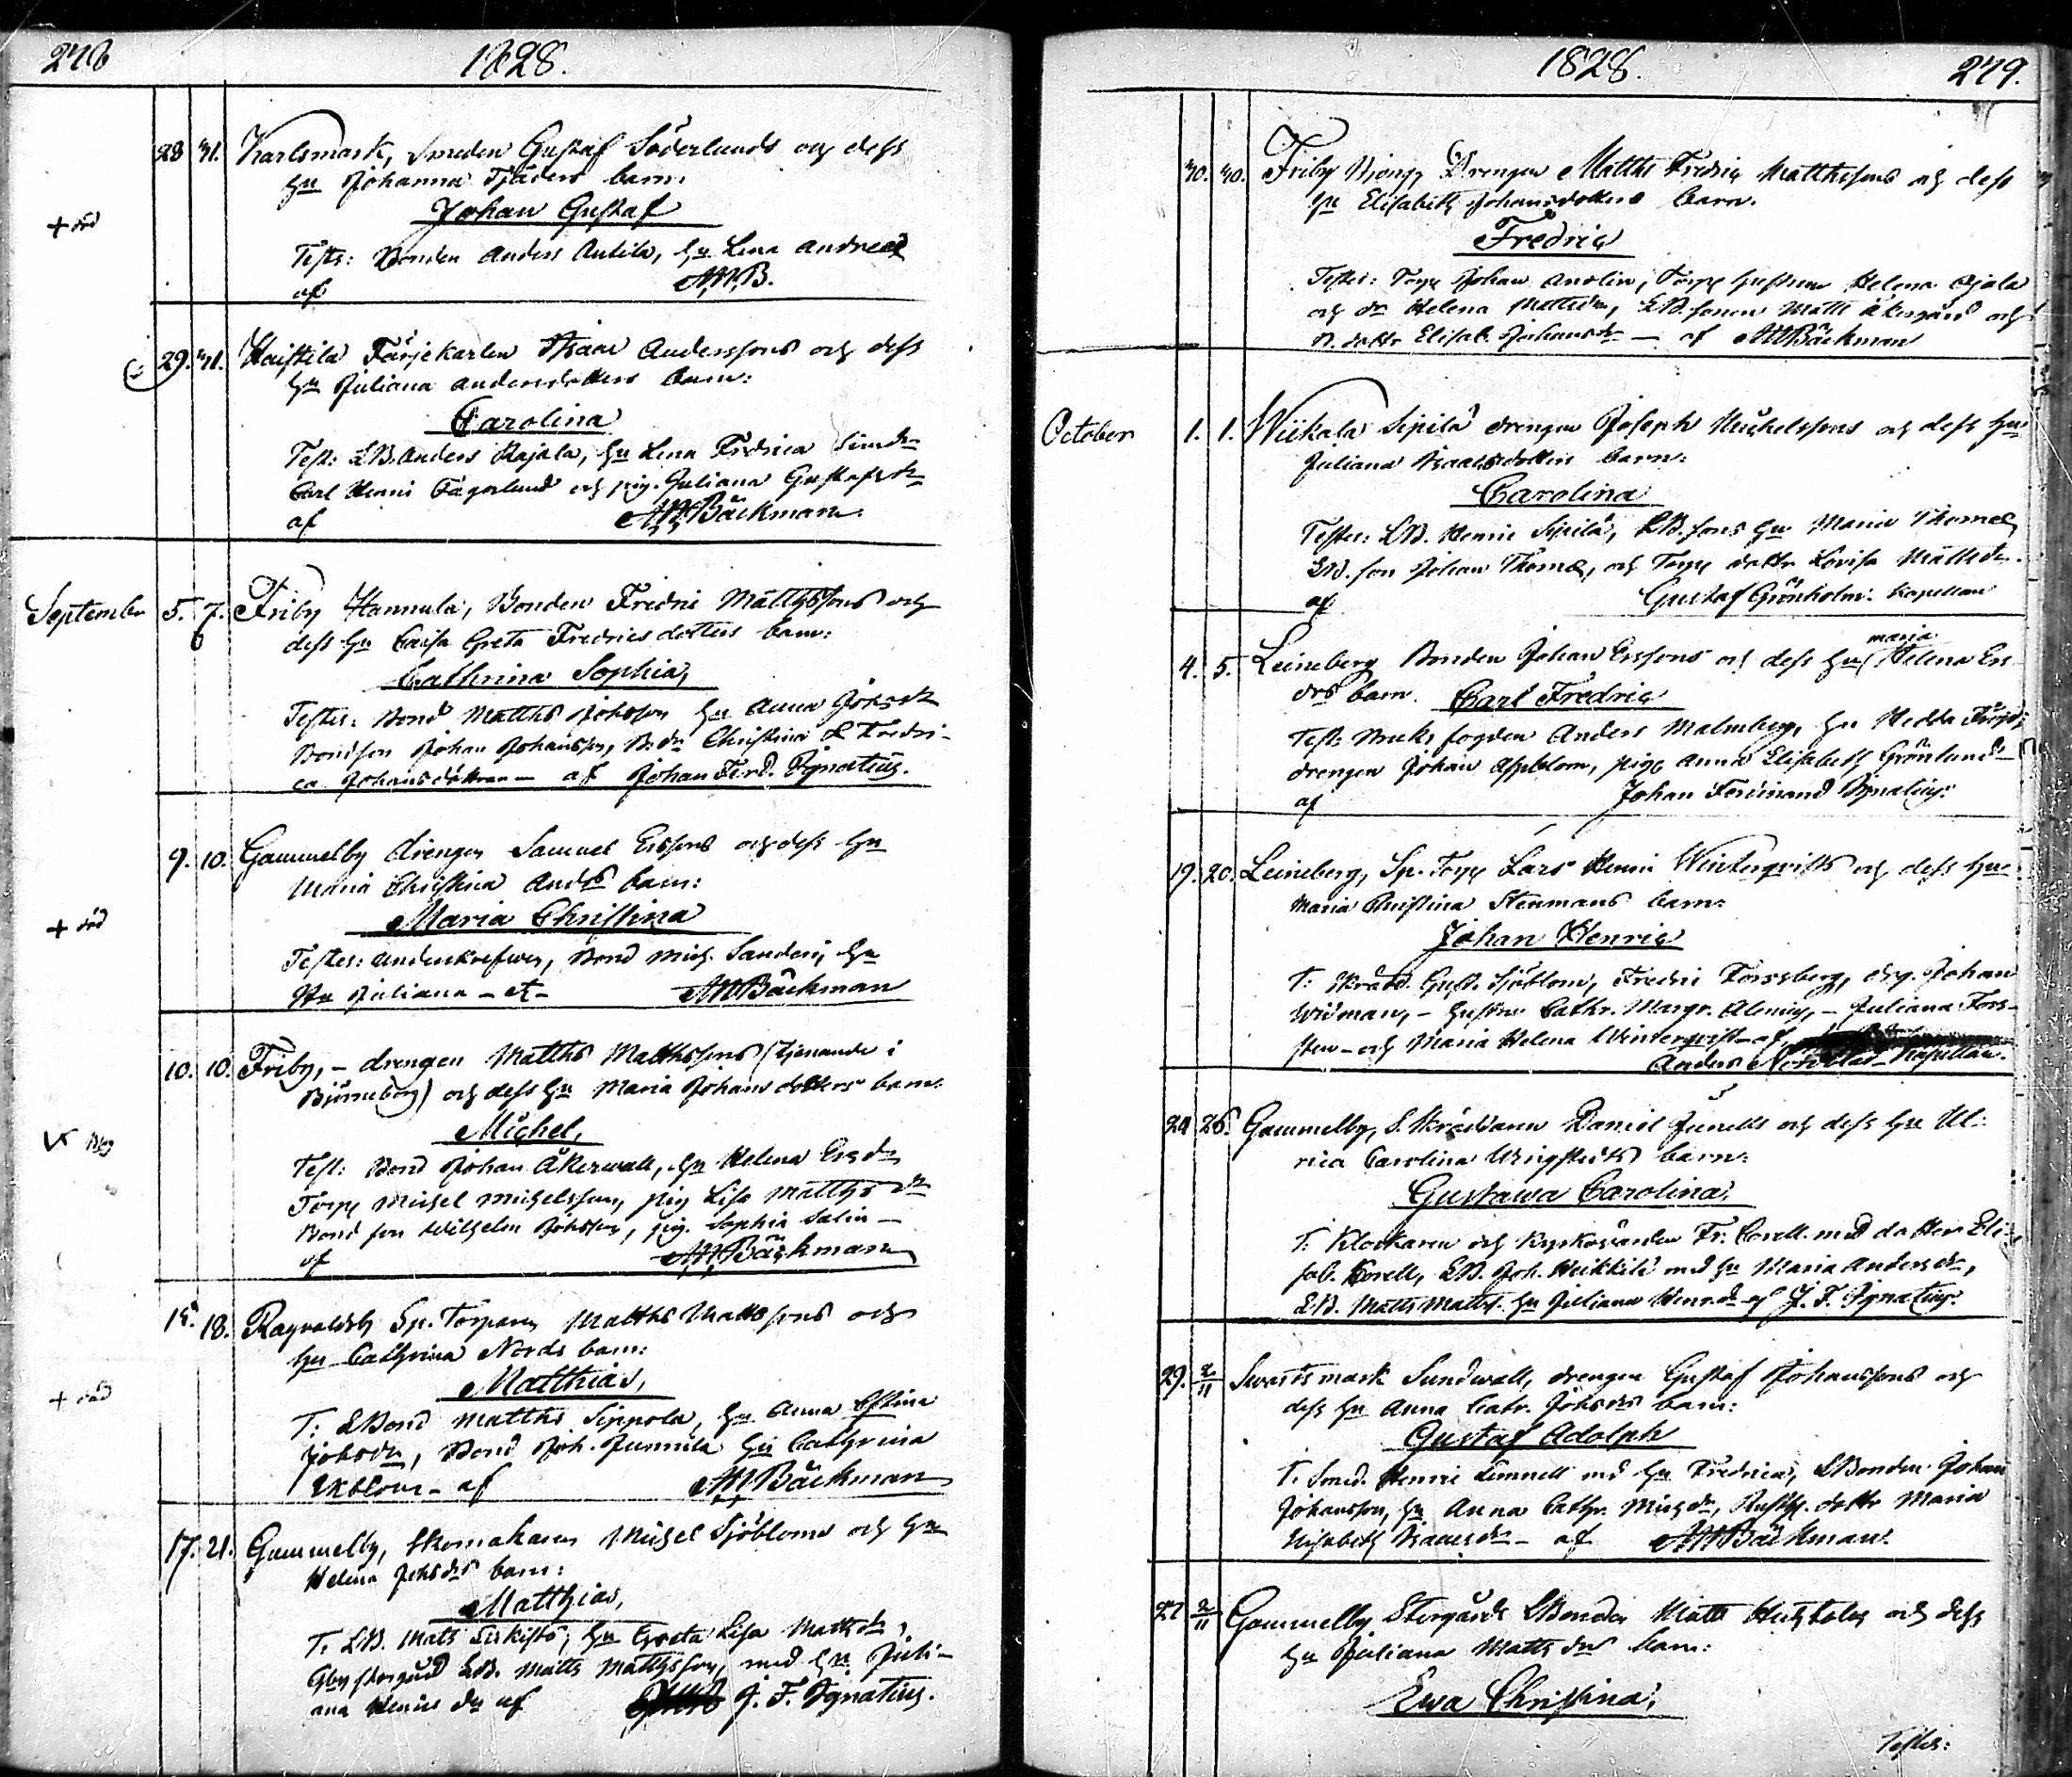 278 1828.
28 31. Karlsmark, Smeden Gustaf Söderlunds och dess
hu Johanna Tjäders barn:
Johan Gustaf
+ död
Testes: Bonden Anders Antila, hu Lena Andreæ
af A.W.B.
29. 31. Haistila Färjekarlen Isaac Anderssons och dess
hu Juliana Andersdotters barn:
Carolina
Test: LB. Anders Rajala, hu Lena Fredrica Simdr
Carl Henric Fagerlund och pig. Juliana Gustafsdr
af A.W. Bäckman.
September 5. 7. Friby Hannula, Bonden Fredric Matthssons och
dess hu Caisa Greta Fredricsdotters barn:
Cathrina Sophia,
Testes: Bond Matths Johsson hu Anna Johsdr
Bondson Johan Johansson, B.dr Christina & Fredri-
ca Johansdöttrar — af Johan Ferd. Ignatius.
9. 10. Gammelby drengen Samuel Erssons och dess hu
Maria Christina Andrs barn:
Maria Christina
+ död
Testes: Bond Mich. Sanderi, hu
Juliana - et - A.W. Bäckman
10. 10. Friby, - drengen Matths Matthssons (tjenande i
Björneborg) och dess hu Maria Johans dotters barn.
Michel,
Test: Bond Johan Åkerwall, hu Helena Ersdr
Torp Michel Michelsson, pig Lisa Matthsdr
Bond son Wilhelm Johsson, pig. Sophia Salin —
af A.W. Bäckman
15. 18. Ragvaldsby Sp. Torparen Matths Mattssons och
hu Cathrina Nords barn:
Matthias,
+ död
T: LBond Matths Sippola, hu Anna Stina
Johsdr, Bond Joh. Junnila hu Cathrina
Ekblom - af A.W. Bäckman
17. 21. Gammelby, Skomakaren Michel Sjöbloms och hu
Helena Johsdrs barn:
Matthias,
T. LB. Mats hu Greta Lisa Mattsdr,
Gby Storgård LB. Matts Matthsson, med hu Juli-
ana Henrics dr af J. F. Ignatius.
1828. 279.
30. 30. Friby Drengen Matths Fredric Matthssons och dess
hu Elisabeth Johansdotters barn.
Fredric
Testes: Torp Johan Anolin, Torp hustrun Helena Ojala
och dr Helena Mattsdr, LB.sonen Matts Åkergård och
B. dottr Elisab. Johansdr — af A.W. Bäckman
October 1. 1. Wiikala Sipilä drengen Joseph Michelssons och dess hu
Juliana Isaacsdotters barn:
Carolina
Testes: LB. Henric Sipilä, LB. sons hu Maria Thomædr
LB. son Johan Thomæ, och Torp dottr Lovisa Mattsdr.
af Gustaf Grönholm. Kapellan
4. 5. Leineberg Bonden Johan Erssons och dess hu Maria Helena Ers
drs barn. Carl Fredric
Test: Bruks fogden Anders Malmberg, hu Hedda
drengen Johan Appblom, piga Anna Elisabeth Grönlund
af Johan Ferdinand Ignatius.
19. 20. Leineberg, Sp. Torp Lars Henric Winterqvists och dess hu
Maria Christina Stenmans barn:
Johan Henric
T: Skrädd. Gust. Sjöblom, Fredric Forssberg, drg. Johan
Widman, - hustru Cathr. Margr. Alenius, - Juliana Fors-
sten - och Maria Helena Winterqvist - af
Anders Kapellan.
24 26. Gammelby, S. Skräddaren Daniel Junells och dess hu Ul-
rica Carolina barn:
Gustawa Carolina
T: Klockaren och Kyrkovärden Fr. Corell med dotter Eli-
sab. Corell, LB. Joh. Heikkilä med hu Maria Andersdr,
LB. Matts Matts. hu Juliana Henr.dr af J. F. Ignatius.
29. 2/11 Svartsmark Sundwall, drengen Gustaf Johanssons och
dess hu Anna Catr. Johsdrs barn:
Gustaf Adolph
T. Smed. Henric Linnell med hu Fredrica, LBonden Johan
Johansson, hu Anna Cathr. Michdr, Rusth. dottr Maria
Elisabeth Isaacsdr - af A.W. Bäckman.
27 2/11 Gammelby Storgårds LBonden Matts och dess
hu Juliana Mattsdrs barn:
Ewa Christina,
Testes: